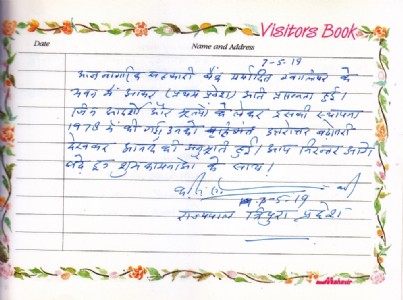 Visitors Book
Date Name and Address
7-5-19
आज नागरिक सहकारी बैंक मर्यादित ग्वालियर के
भवन में आकर (प्रथम प्रवेश) अति प्रसन्नता हुई।
जिन आदर्शों और मूल्यों को लेकर इसकी स्थापना
1978 में की गई, उनको उत्तरोत्तर बढ़ोतरी
देखकर आनंद की अनुभूति हुई। आप निरन्तर आगे
बढ़े इन शुभकामनाओं के साथ।
7-5-19
राज्यपाल त्रिपुरा प्रदेश